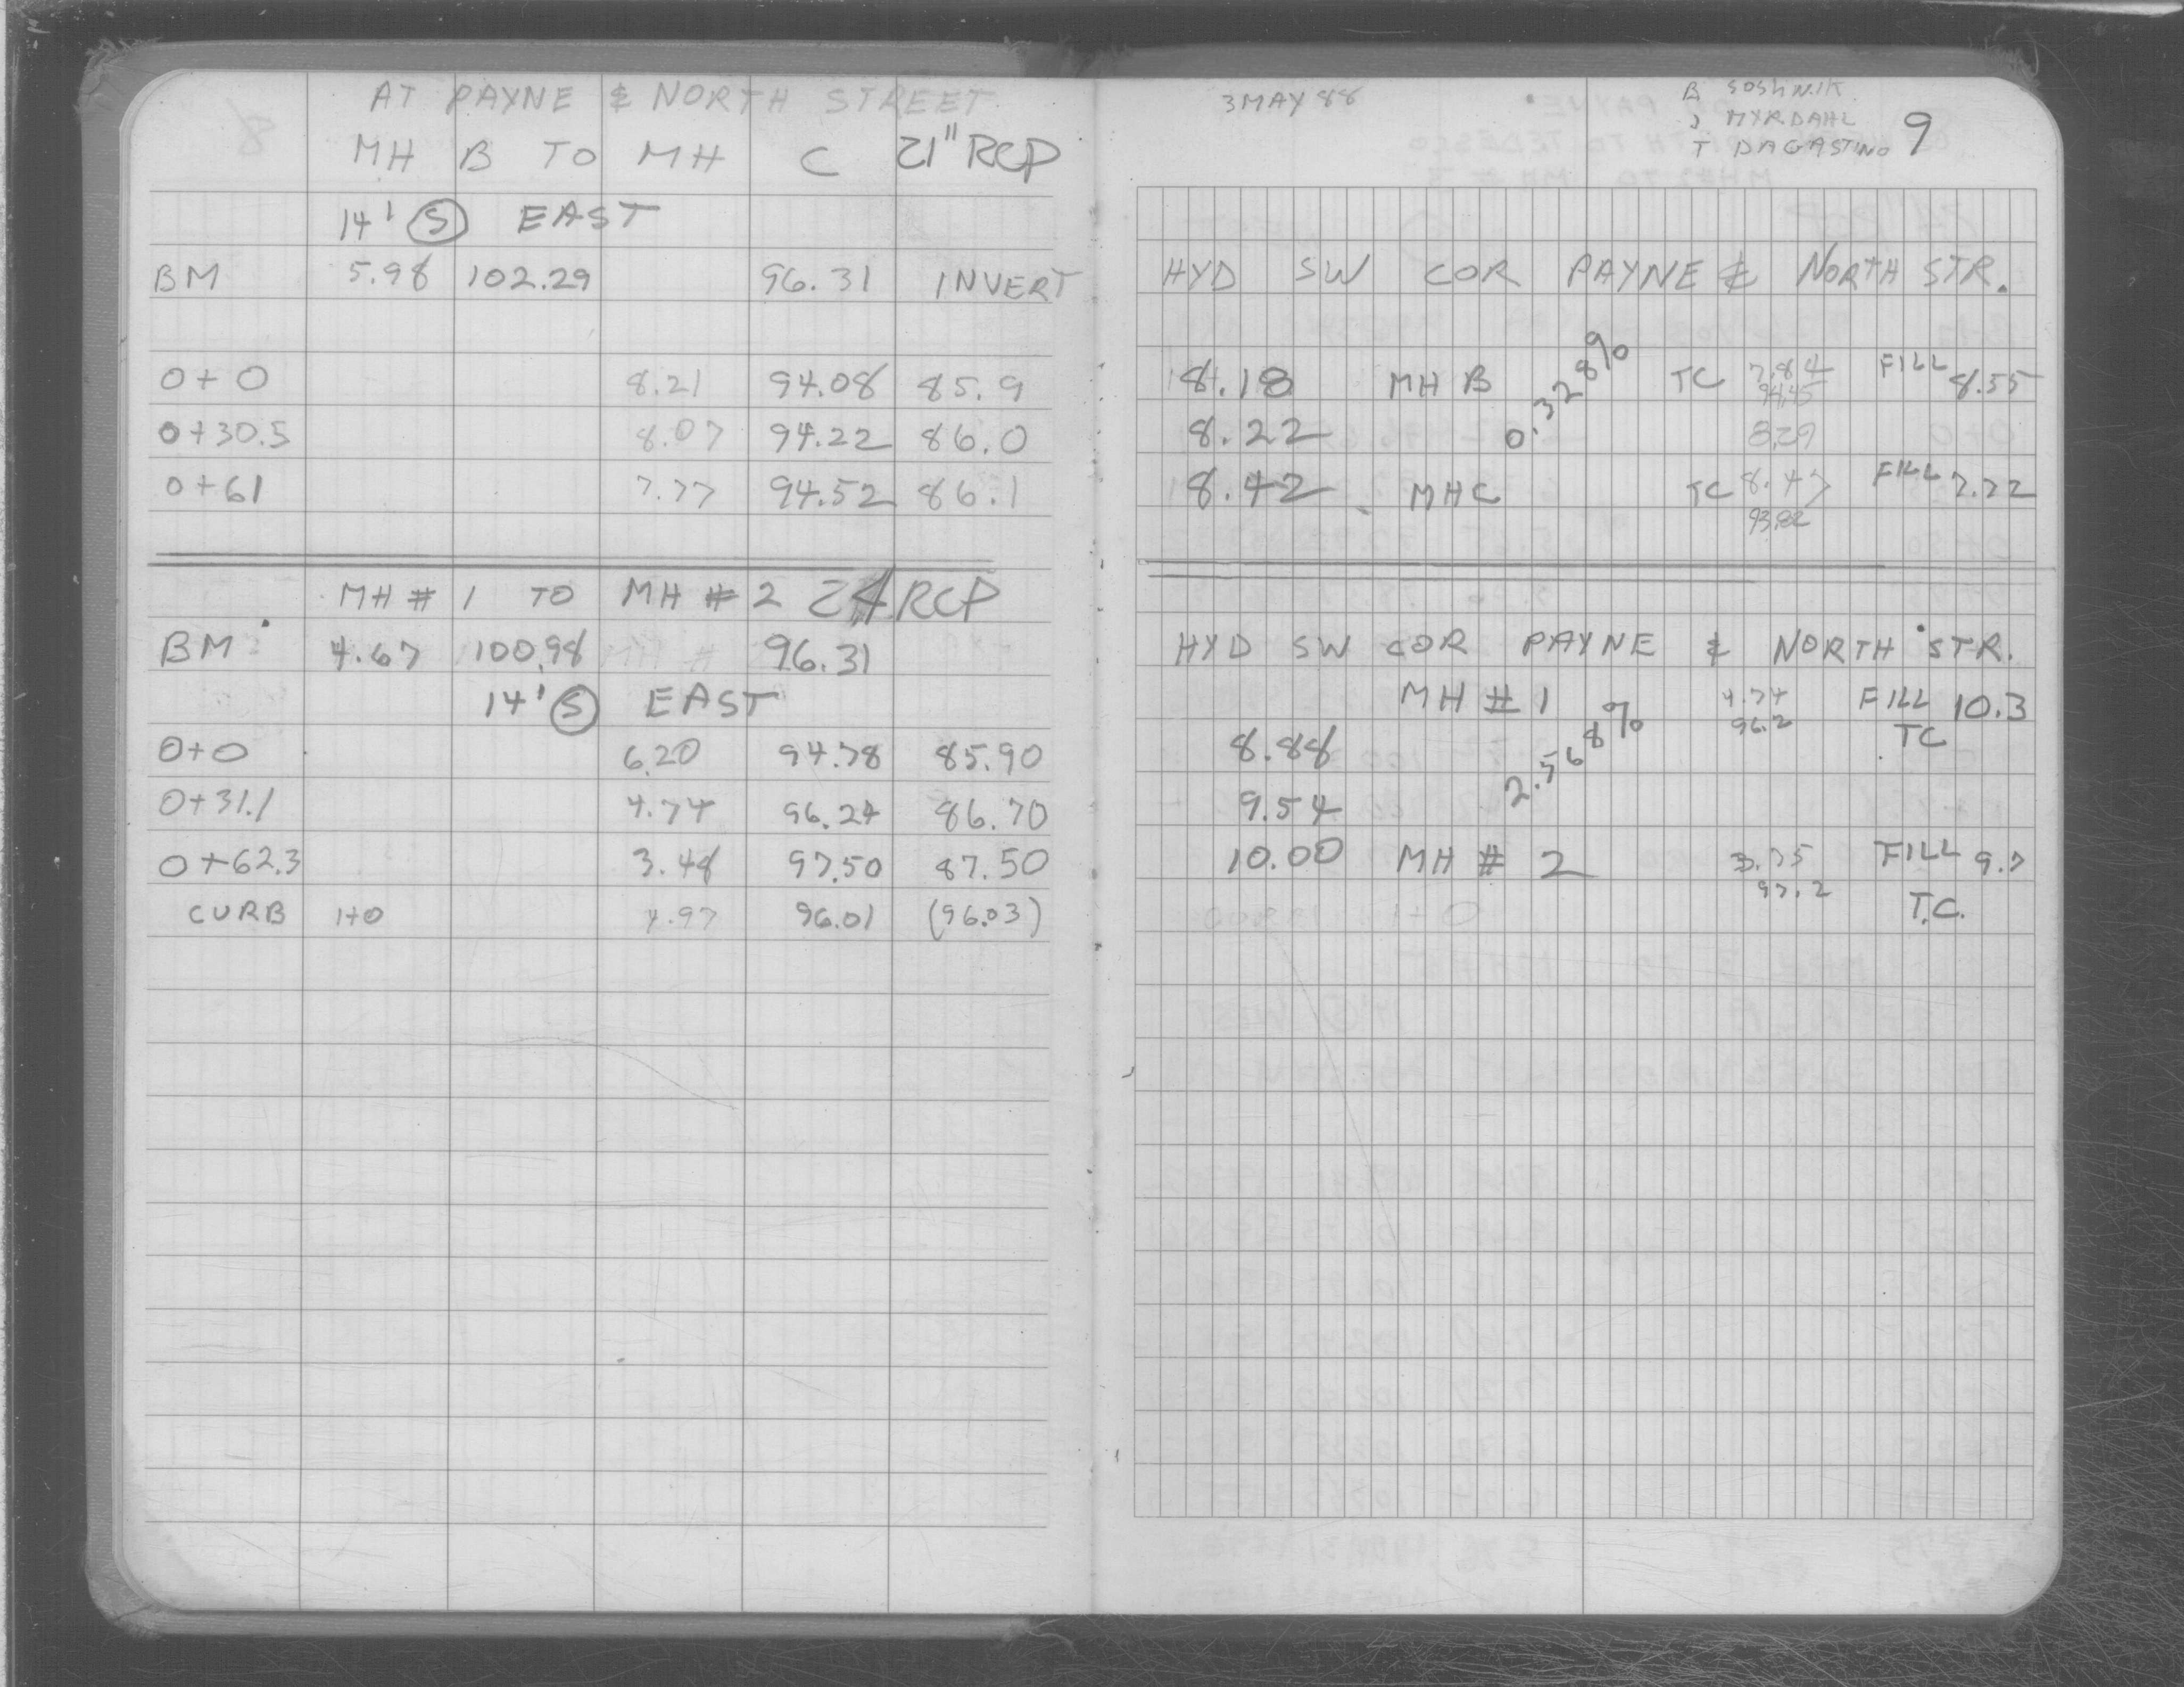 AT PAYNE & NORTH STREET
MH B TO MH C 21" RCP
14' S EAST
BM 5.98 102.29 96.31 INVERT
0+0 8.21 94.08 85.9
0+30.5 8.07 94.22 86.0
0+61 7.77 94.52 86.1
MH # 1 TO MH # 2 24 RCP
BM 4.67 100.98 96.31
14' S EAST
0+0 6.20 94.78 85.90
0+31.1 4.74 96.24 86.70
0+62.3 3.48 97.50 87.50
CURB 1+0 4.97 96.01 (96.03)
3 MAY 88
B SOSHNIK
J MYRDAHL
T DAGASTINO
9
HYD SW COR PAYNE & NORTH STR.
8.18 MH B 0.328% TC 7.84 FILL 8.55
94.45
8.22 8.29
8.42 MH C TC 8.47 FILL 7.72
93.82
HYD SW COR PAYNE & NORTH STR.
MH # 1 4.74 FILL 10.3
96.2 TC
8.88 2.568%
9.54
10.00 MH # 2 3.75 FILL 9.7
97.2 T.C.